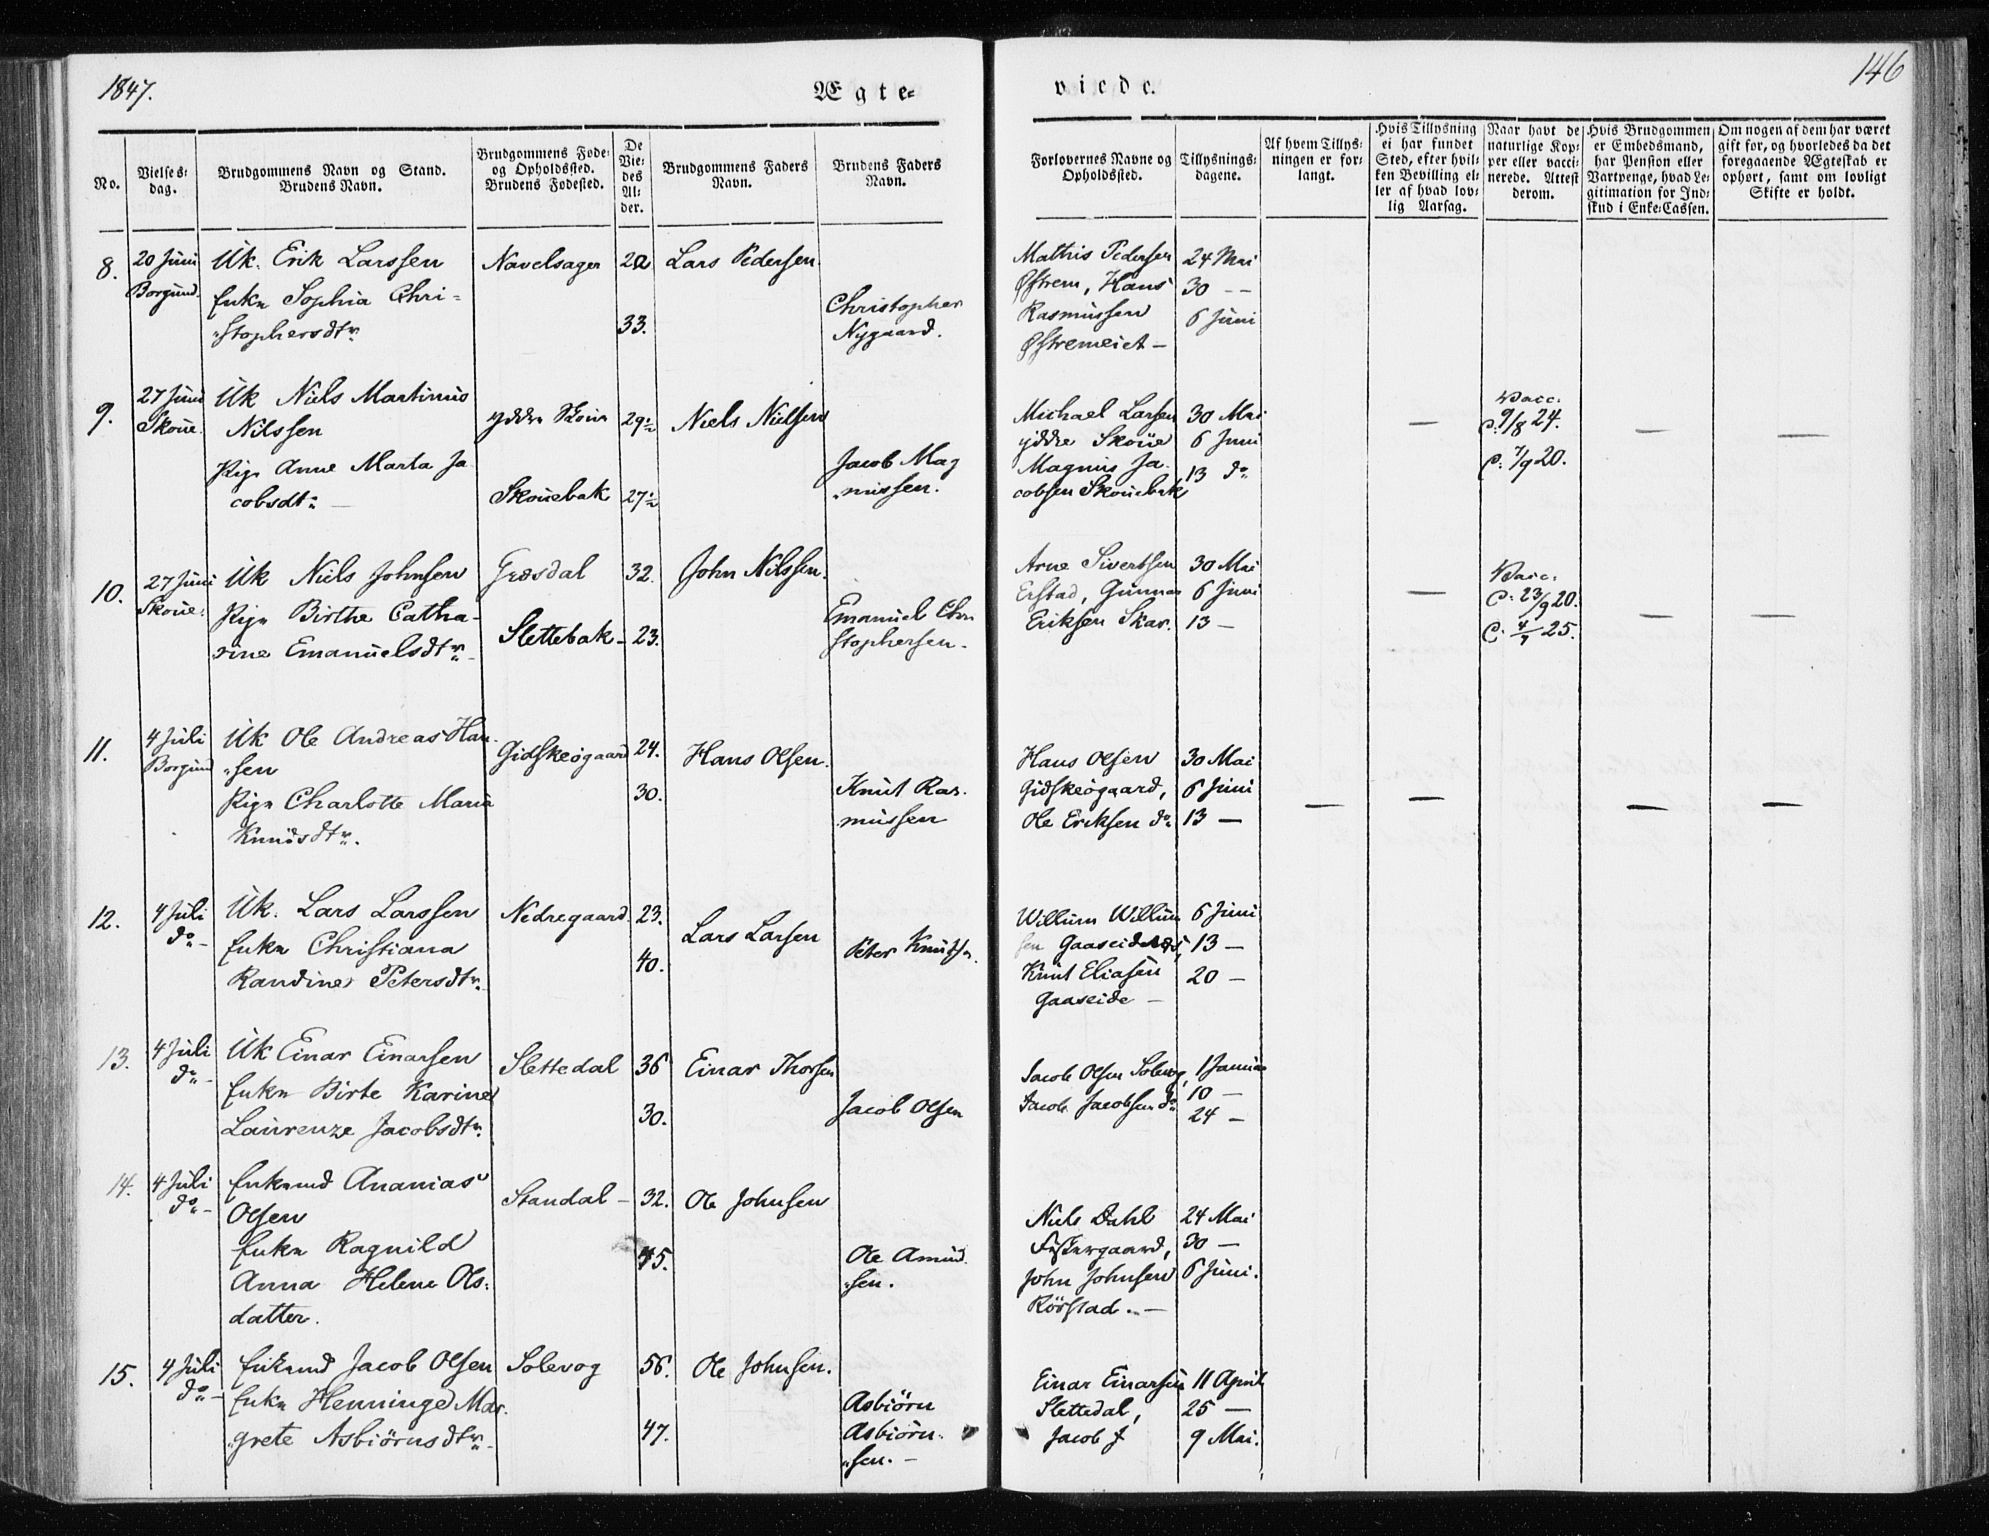 1847.
Ægte=
viede.
146
No.
Vielses=
dag.
Brudgommens Navn og Stand.
Brudens Navn.
Brudgommens Føde=
og Opholdssted.
Brudens Fødested.
De
Vie=
des
Al=
der.
Brudgommens Faders
Navn.
Brudens Faders
Navn.
Forlovernes Navne og
Opholdssted.
Tillysnings=
dagene.
Af hvem Tillys=
ningen er for=
langt.
Hvis Tillysning
ei har fundet
Sted, efter hvil=
ken Bevilling el=
ler af hvad lov=
lig Aarsag.
Naar havt de
naturlige Kop=
per eller vacci=
nerede. Attest
derom.
Hvis Brudgommen
er Embedsmand,
har Pension eller
Vartpenge, hvad Le=
gitimation for Ind=
skud i Enke=Cassen.
Om nogen af dem har været
gift før, og hvorledes da det
foregaaende Ægteskab er
ophørt, samt om lovligt
Skifte er holdt.
8.
20 Juni
Borgund.
Uk. Erik Larssen
Enkn Sophia Chri=
stophersdtr.
Navelsager
22
33.
Lars Pedersen.
Christopher
Nygaard.
Mathis Pedersen
Østrem, Hans
Rasmussen
Østremeiet —
24 Mai
30 — —
6 Juni
9.
27 Juni
Skoue.
Uk Niels Martinus
Nilssen
Pign Anne Marta Ja
cobsdtr —
yddre Skoue
Skouebak
29½
27½
Niels Nielsen
Jacob Mag
nussen.
Michael Larsen
yddre Skoue
Magnus Ja.
cobsen Skouebak
30 Mai
6 Juni
13 do
—
Vacc.
C: 9/8 24.
C: 7/9 20.
—
—
10.
27 Juni
Skoue.
Uk Niels Johnsen
Pign Birthe Catha-
rine Emanuelsdtr
Græsdal
Slettebak —
32.
23.
John Nilssen.
Emanuel Chri
stophersen.
Arne Sivertsen
Erstad, Gunnar
Eriksen Skar.
30 Mai
6 Juni
13 —
—
Vacc.
C: 23/9 20.
C. 4/7 25.
—
—
11.
4 Juli
Borgund
Uk Ole Andreas Han-
sen
Pign Charlotte Maria
Knudsdtr.
Gidskeøgaard
24.
30.
Hans Olsen.
Knut Ras-
mussen
Hans Olsen
Gidskeøgaard,
Ole Eriksen do
30 Mai
6 Juni
13 —
—
—
—
—
12.
4 Juli
do —
Uk. Lars Larssen
Enkn Christiana
Randine Petersdtr.
Nedregaard
23.
40.
Lars Larsen
Peter Knutsn.
Willum Willum
sen Gaaseidnes,
Knut Eliasen
Gaaseide —
6 Juni
13 —
20 —
13.
4 Juli
do —
Uk Einar Einarsen
Enkn Birte Karine
Laurenze Jacobsdtr.
Slettedal
36
30.
Einar Thorsen
Jacob Olsen
Jacob Olsen Solevog,
Jacob Jacobsen do
1 Januar
10 —
24 —
14.
4 Juli
do —
Enkemd Ananias
Olsen
Enkn Ragnild
Anna Helene Ols=
datter.
Standal —
32.
45.
Ole Johnsen
Ole Amund
sen.
Niels Dahl
Fiskergaard,
John Johnsen
Rørstad. —
24 Mai
30 —
6 Juni.
15.
4 Juli
do —
Enkemd Jacob Olsen
Enkn Henninge Mar-
grete Asbiørnsdtr
Solevog
56.
47.
Ole Johnsen.
Asbiørn
Asbiørn-
sen. —
Einar Einarsen
Slettedal,
Jacob J
11 April
25 —
9 Mai.